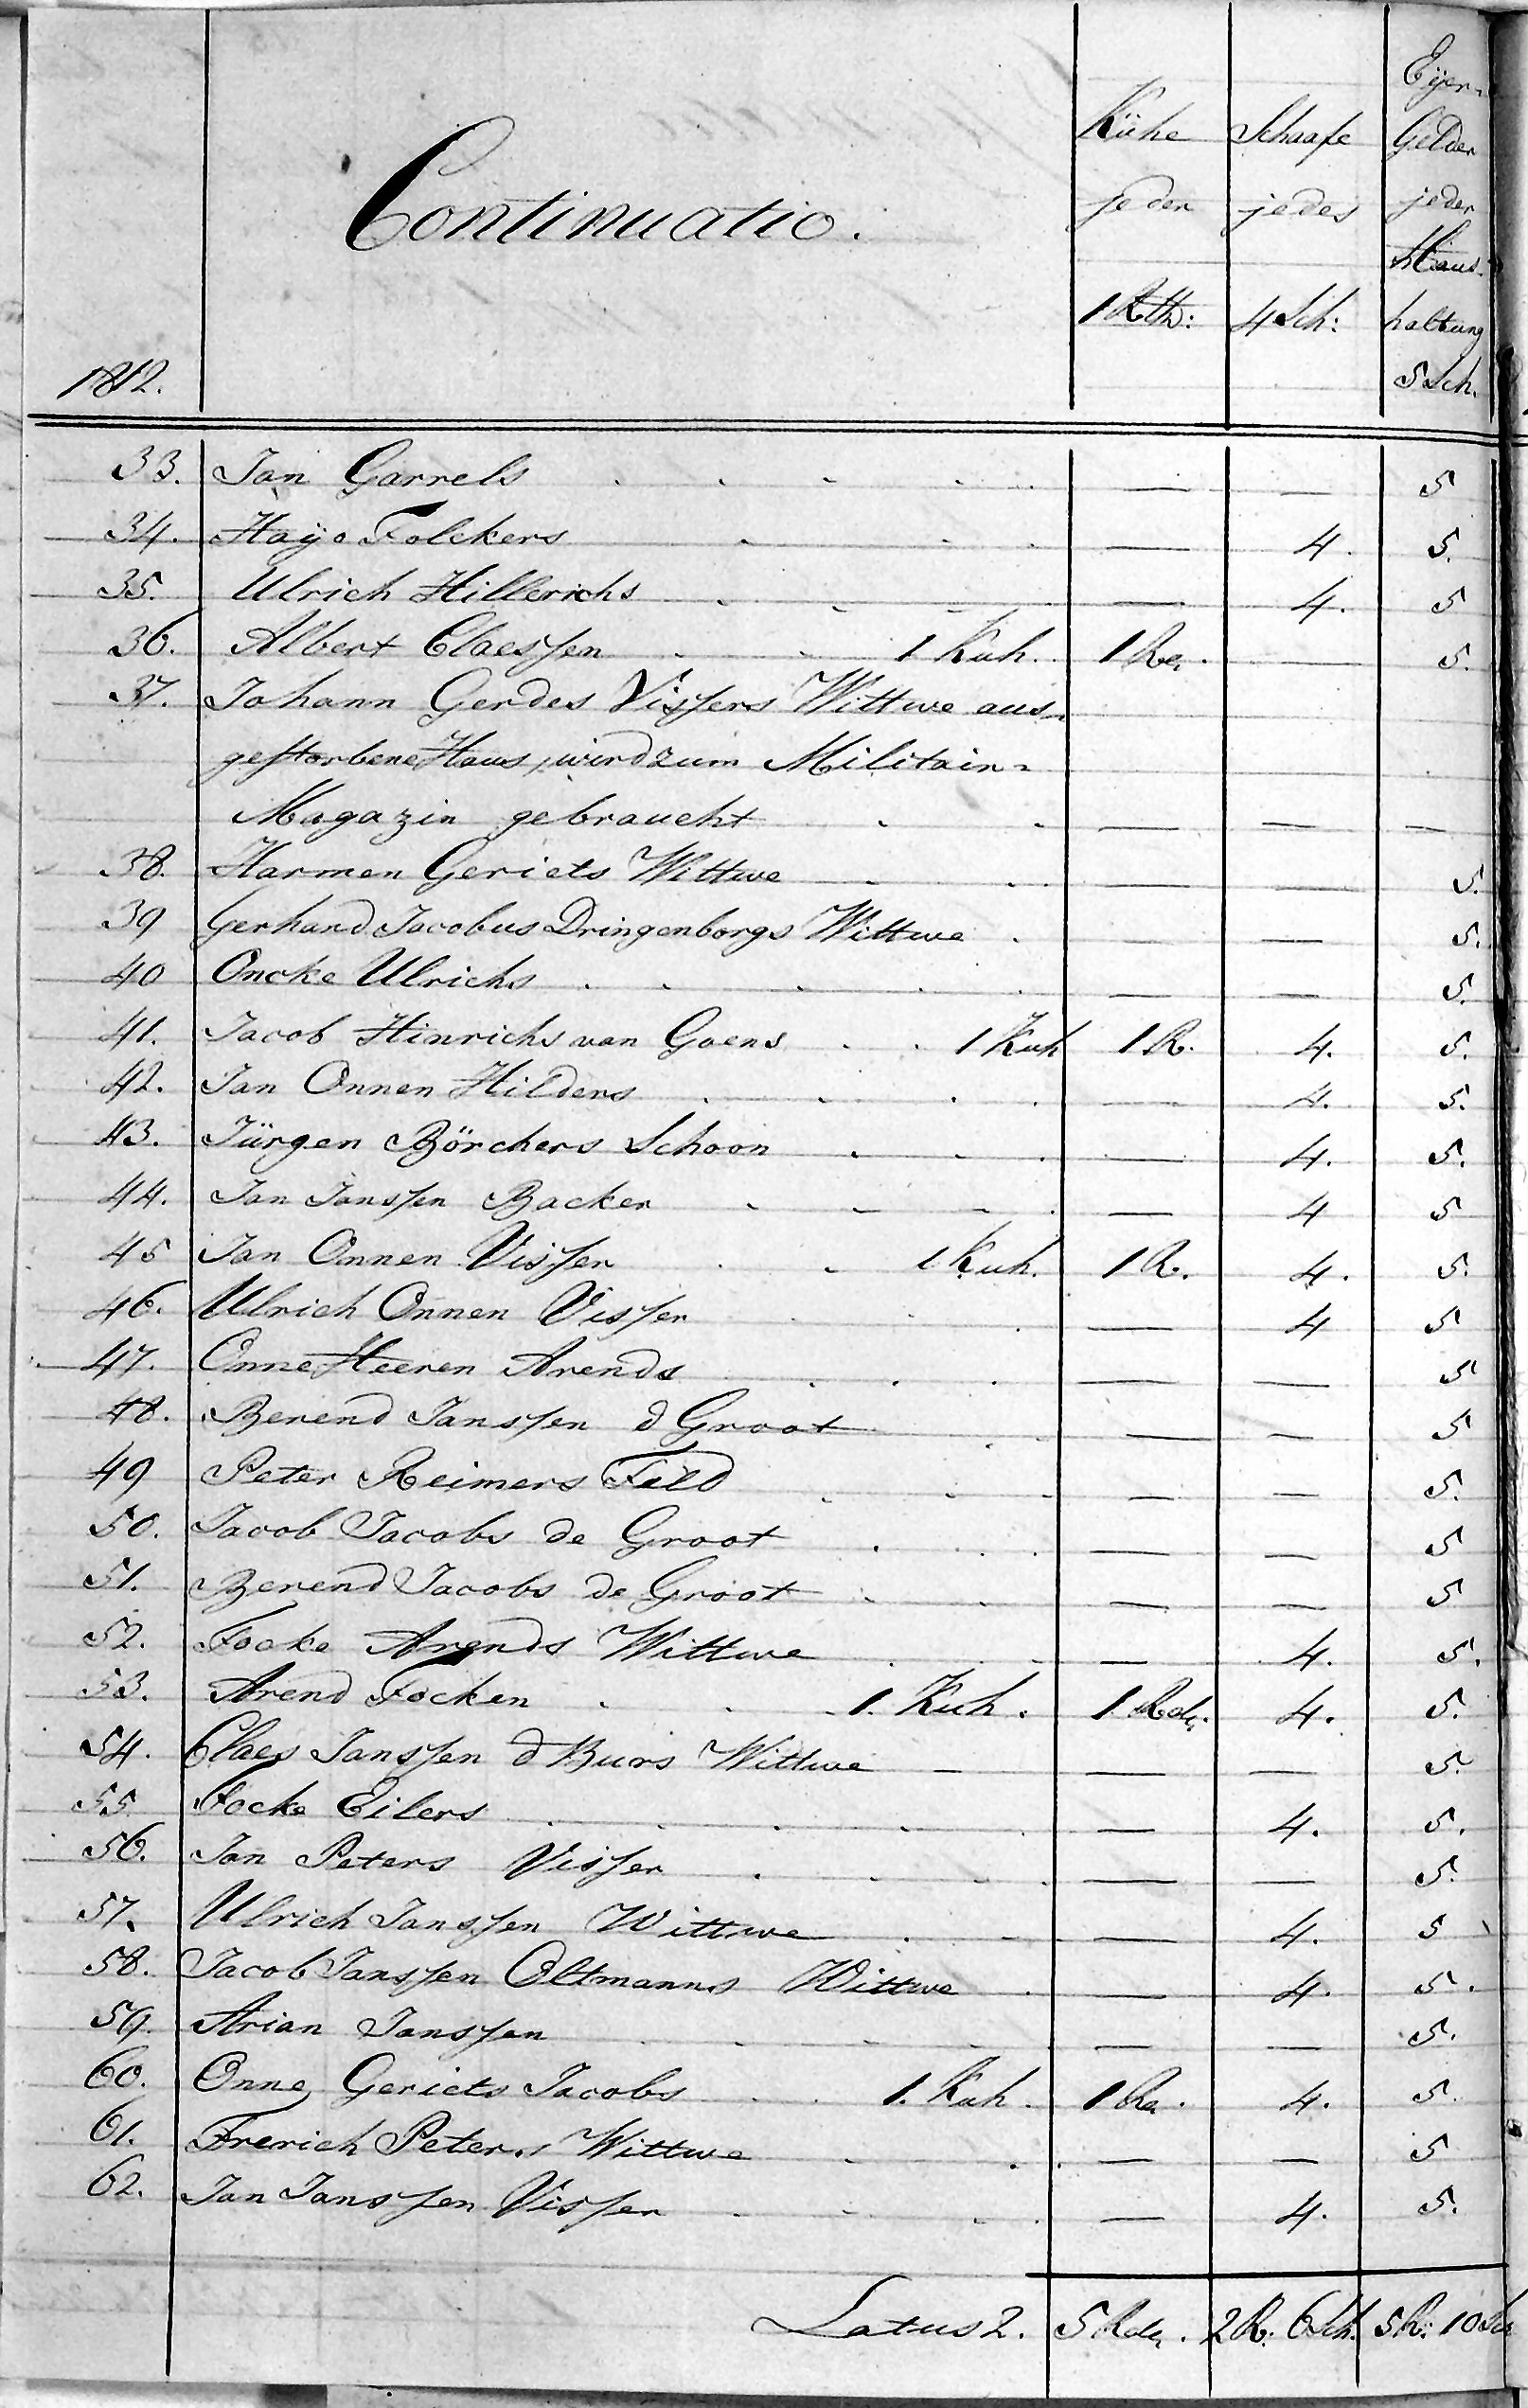 1812.
Continuatio.
Kühe jeder 1 Rth:
Schaafe jedes 4 Sch:
Eÿer- Gelder jeder Haus- haltung 5 Sch.
33. Jan Garrels — — 5
34. Haÿo Folckers — 4. 5.
35. Ulrich Hillerichs — 4. 5
36. Albert Claessen 1 Kuh. 1 R. — 5.
37. Johann Gerdes Vissers Wittwe aus-
gestorbene Haus, wird zum Militair-
Magazin gebraucht — — —
38. Harmen Geriets Wittwe — — 5.
39 Gerhard Jacobus Dringenborgs Wittwe — — 5.
40 Oncke Ulrichs — — 5.
41. Jacob Hinrichs van Goens 1 Kuh 1 R. 4. 5.
42. Jan Onnen Hilders — 4. 5.
43. Jürgen Börchers Schoon — 4. 5.
44. Jan Janssen Backer — 4 5
45 Jan Onnen Visser 1 Kuh. 1 R. 4. 5.
46. Ulrich Onnen Visser — 4 5
47. Onne Heeren Arends — — 5
48. Berend Janssen d Groot — — 5
49 Peter Reimers Feld — — 5.
50. Jacob Jacobs de Groot — — 5
51. Berend Jacobs de Groot — — 5
52. Focke Arends Wittwe — 4. 5.
53. Arend Focken 1. Kuh. 1 Rth. 4. 5.
54. Claes Janssen d Burs Wittwe — — 5.
55 Focke Eilers — 4. 5.
56. Jan Peters Visser — — 5.
57. Ulrich Janssen Wittwe — 4. 5
58. Jacob Janssen Oltmanns Wittwe — 4. 5.
59. Arian Janssen — — 5.
60. Onne Geriets Jacobs 1. Kuh. 1 R. 4. 5
61. Frerich Peters Wittwe — — 5
62. Jan Janssen Visser — 4. 5.
Latus 2. 5 Rth. 2 R. 6 Sch. 5 R. 10 Sch